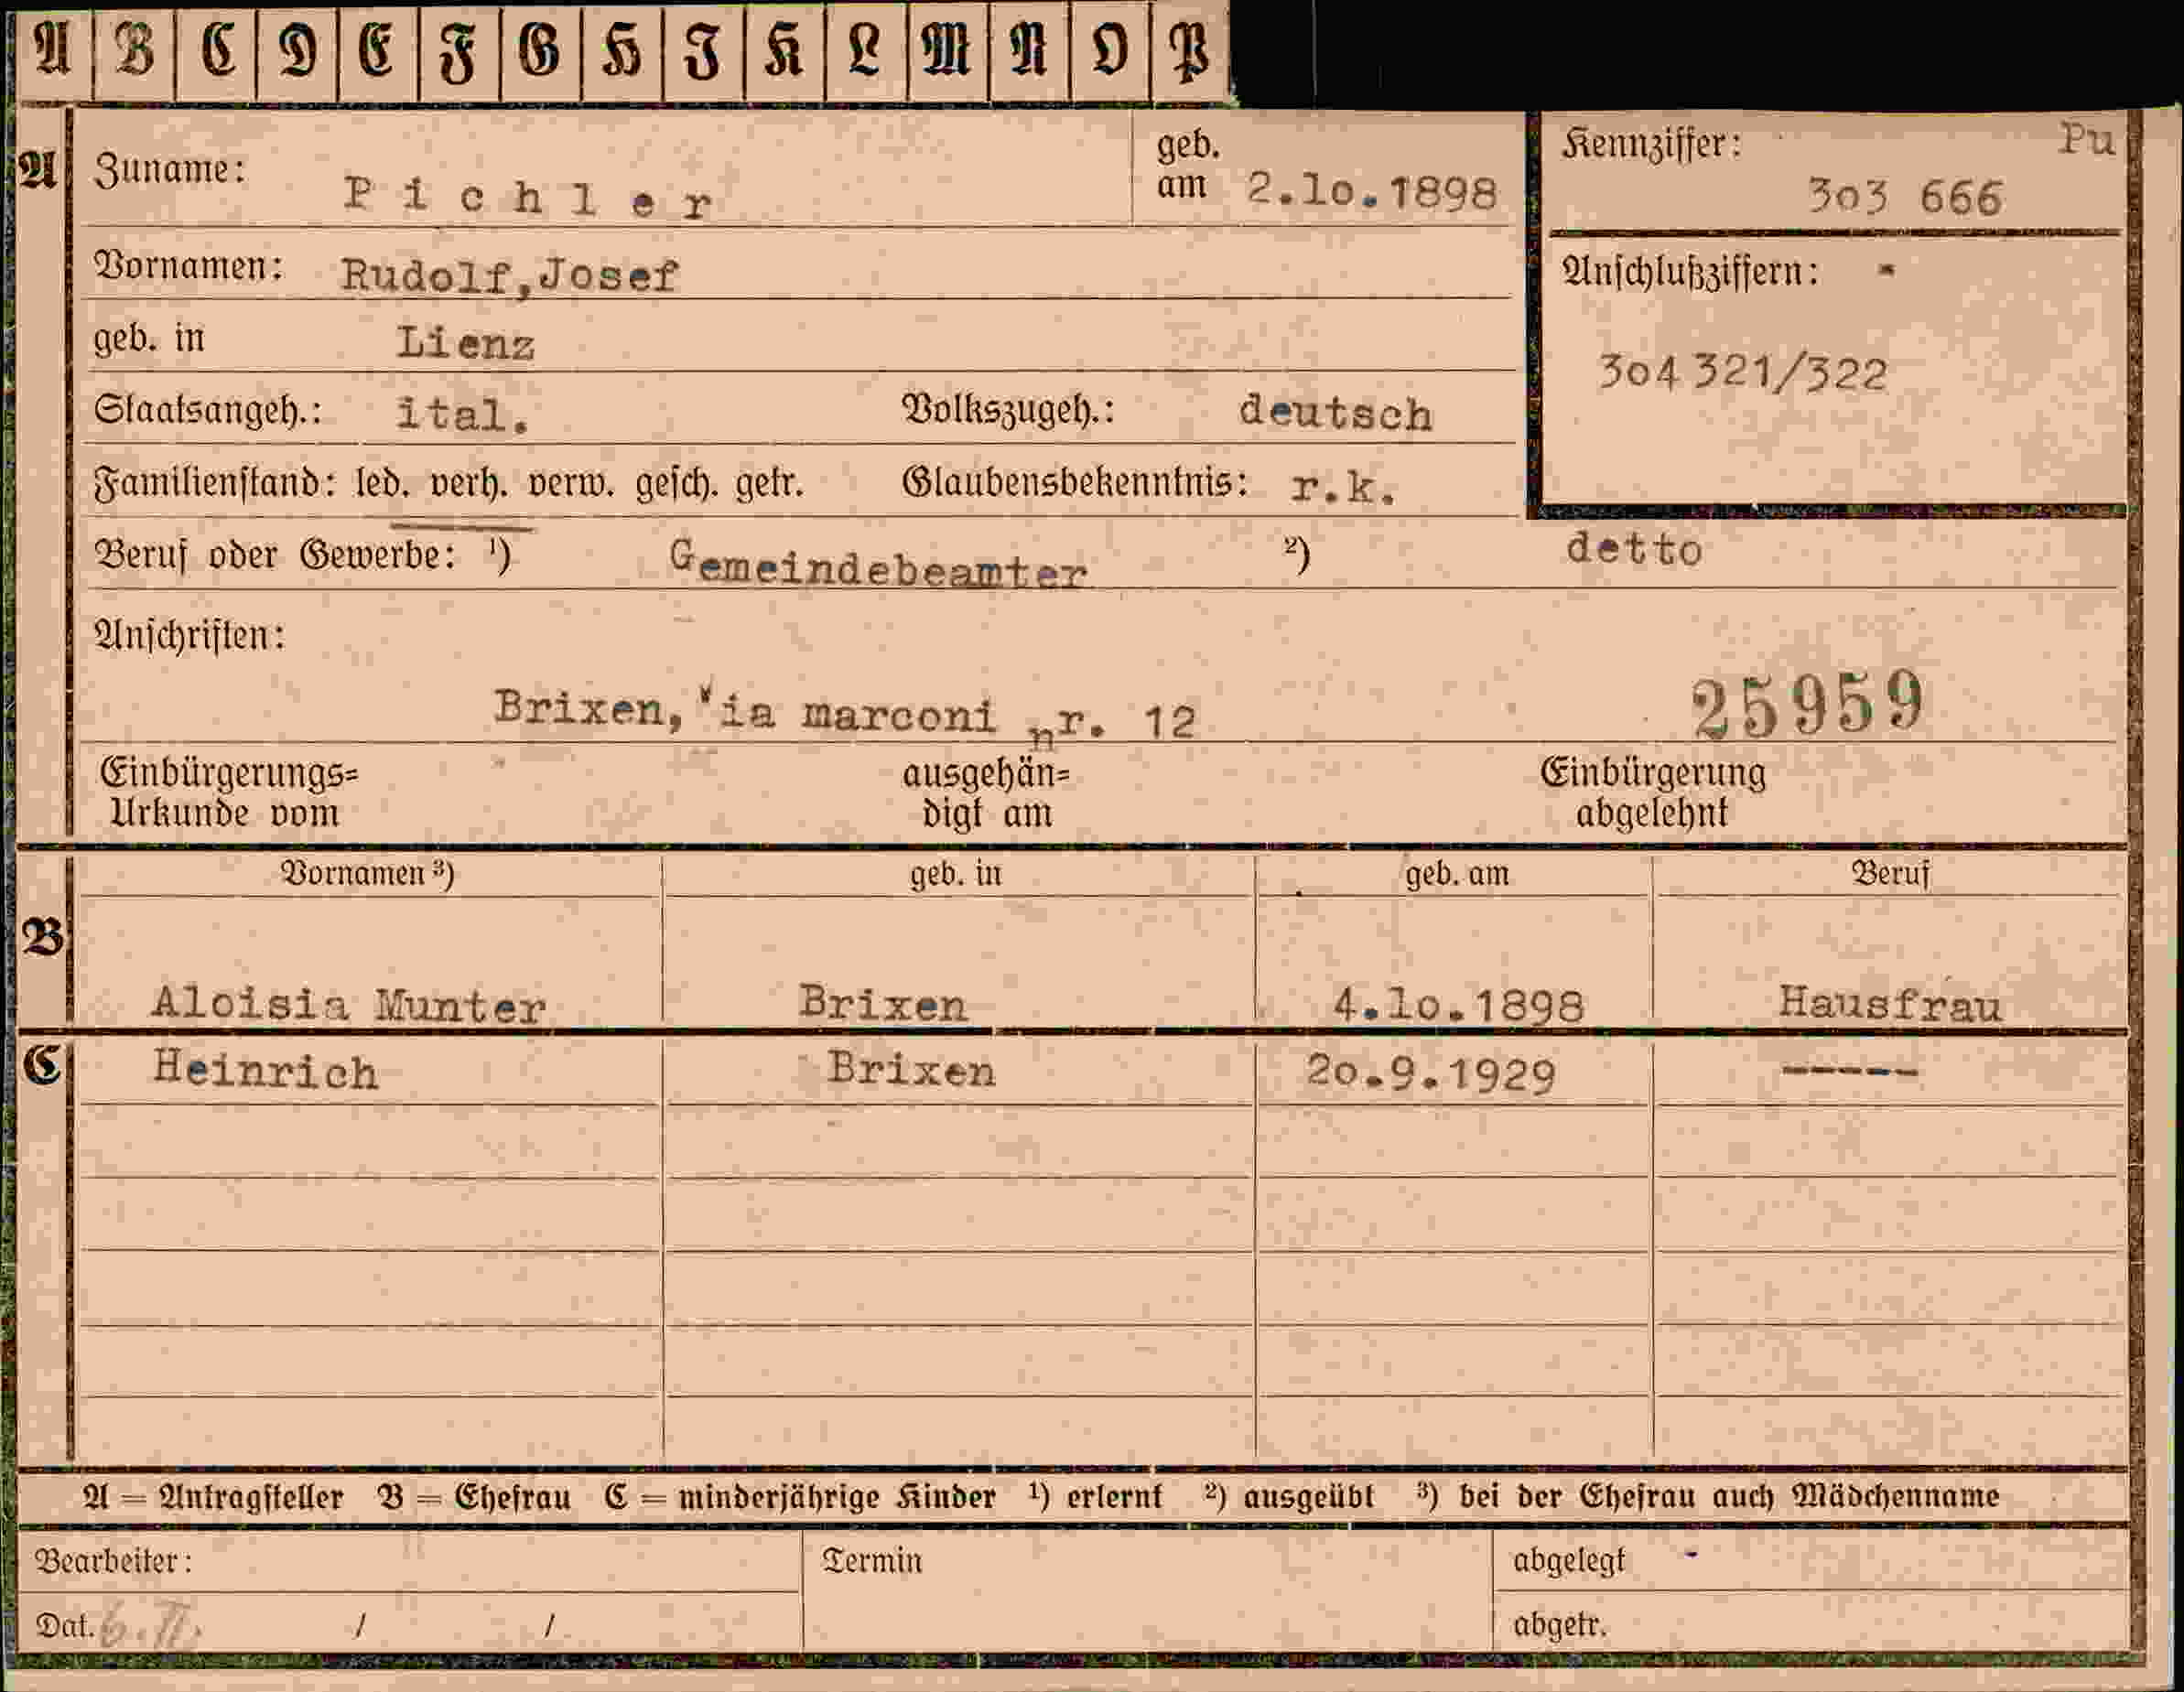 A B C D E F G H I K L M N O P
A Zuname: Pichler geb. am 2.lo.1898 Kennziffer: Pu
3o3 666
Vornamen: Rudolf,Josef Anschlußziffern:
geb. in Lienz
3o4 321/322
Staatsangeh.: ital. Volkszugeh.: deutsch
Familienstand: led. verh. verw. gesch. getr. Glaubensbekenntnis: r.k.
Beruf oder Gewerbe: ¹) Gemeindebeamter ²) detto
Anschriften:
Brixen, Via marconi nr. 12 25959
Einbürgerungs= ausgehän= Einbürgerung
Urkunde vom digt am abgelehnt
Vornamen ³) geb. in geb. am Beruf
B
Aloisia Munter Brixen 4.lo.1898 Hausfrau
C Heinrich Brixen 2o.9.1929 ------
A = Antragsteller B = Ehefrau C = minderjährige Kinder ¹) erlernt ²) ausgeübt ³) bei der Ehefrau auch Mädchenname
Bearbeiter: Termin abgelegt -
Dat. 6.II. / / abgetr.